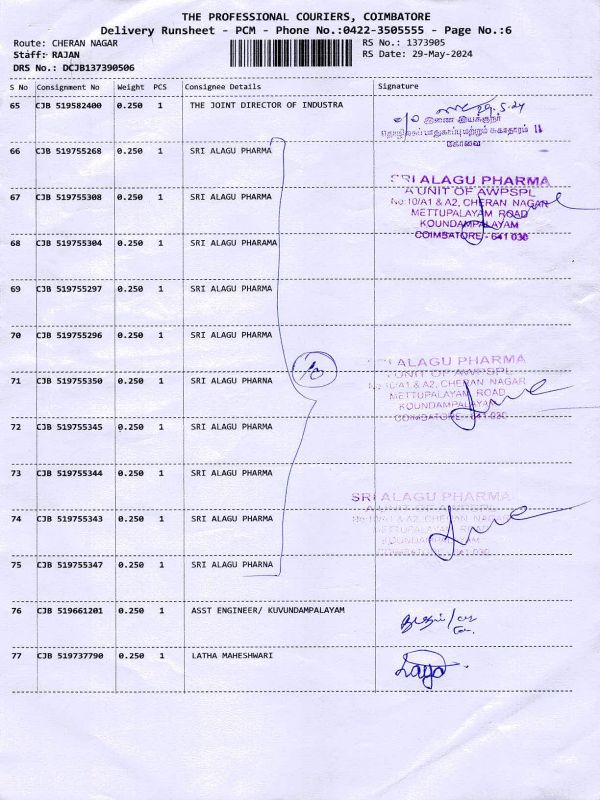 THE PROFESSIONAL COURIERS, COIMBATORE
Delivery Runsheet - PCM - Phone No.:0422-3505555 - Page No.:6
Route: CHERAN NAGAR
RS No.: 1373905
Staff: RAJAN
RS Date: 29-May-2024
DRS No.: DCJB137390506
S No Consignment No Weight PCS Consignee Details Signature
65 CJB 519582400 0.250 1 THE JOINT DIRECTOR OF INDUSTRA
29.5.24
o/o இணை இயக்குநர்
தொழிலகப் பாதுகாப்பு மற்றும் சுகாதாரம் II
கோவை
66 CJB 519755268 0.250 1 SRI ALAGU PHARMA
67 CJB 519755308 0.250 1 SRI ALAGU PHARMA
SRI ALAGU PHARMA
A UNIT OF AWPSPL
No:10/A1 & A2, CHERAN NAGAR
METTUPALAYAM ROAD
KOUNDAMPALAYAM
COIMBATORE - 641 030
68 CJB 519755304 0.250 1 SRI ALAGU PHARAMA
69 CJB 519755297 0.250 1 SRI ALAGU PHARMA
70 CJB 519755296 0.250 1 SRI ALAGU PHARMA
10
71 CJB 519755350 0.250 1 SRI ALAGU PHARNA
SRI ALAGU PHARMA
A UNIT OF AWPSPL
No:10/A1 & A2, CHERAN NAGAR
METTUPALAYAM ROAD
KOUNDAMPALAYAM
COIMBATORE - 641 030
72 CJB 519755345 0.250 1 SRI ALAGU PHARMA
73 CJB 519755344 0.250 1 SRI ALAGU PHARMA
74 CJB 519755343 0.250 1 SRI ALAGU PHARMA
SRI ALAGU PHARMA
A UNIT OF AWPSPL
No:10/A1 & A2, CHERAN NAGAR
METTUPALAYAM ROAD
KOUNDAMPALAYAM
COIMBATORE - 641 030
75 CJB 519755347 0.250 1 SRI ALAGU PHARNA
76 CJB 519661201 0.250 1 ASST ENGINEER/ KUVUNDAMPALAYAM
77 CJB 519737790 0.250 1 LATHA MAHESHWARI